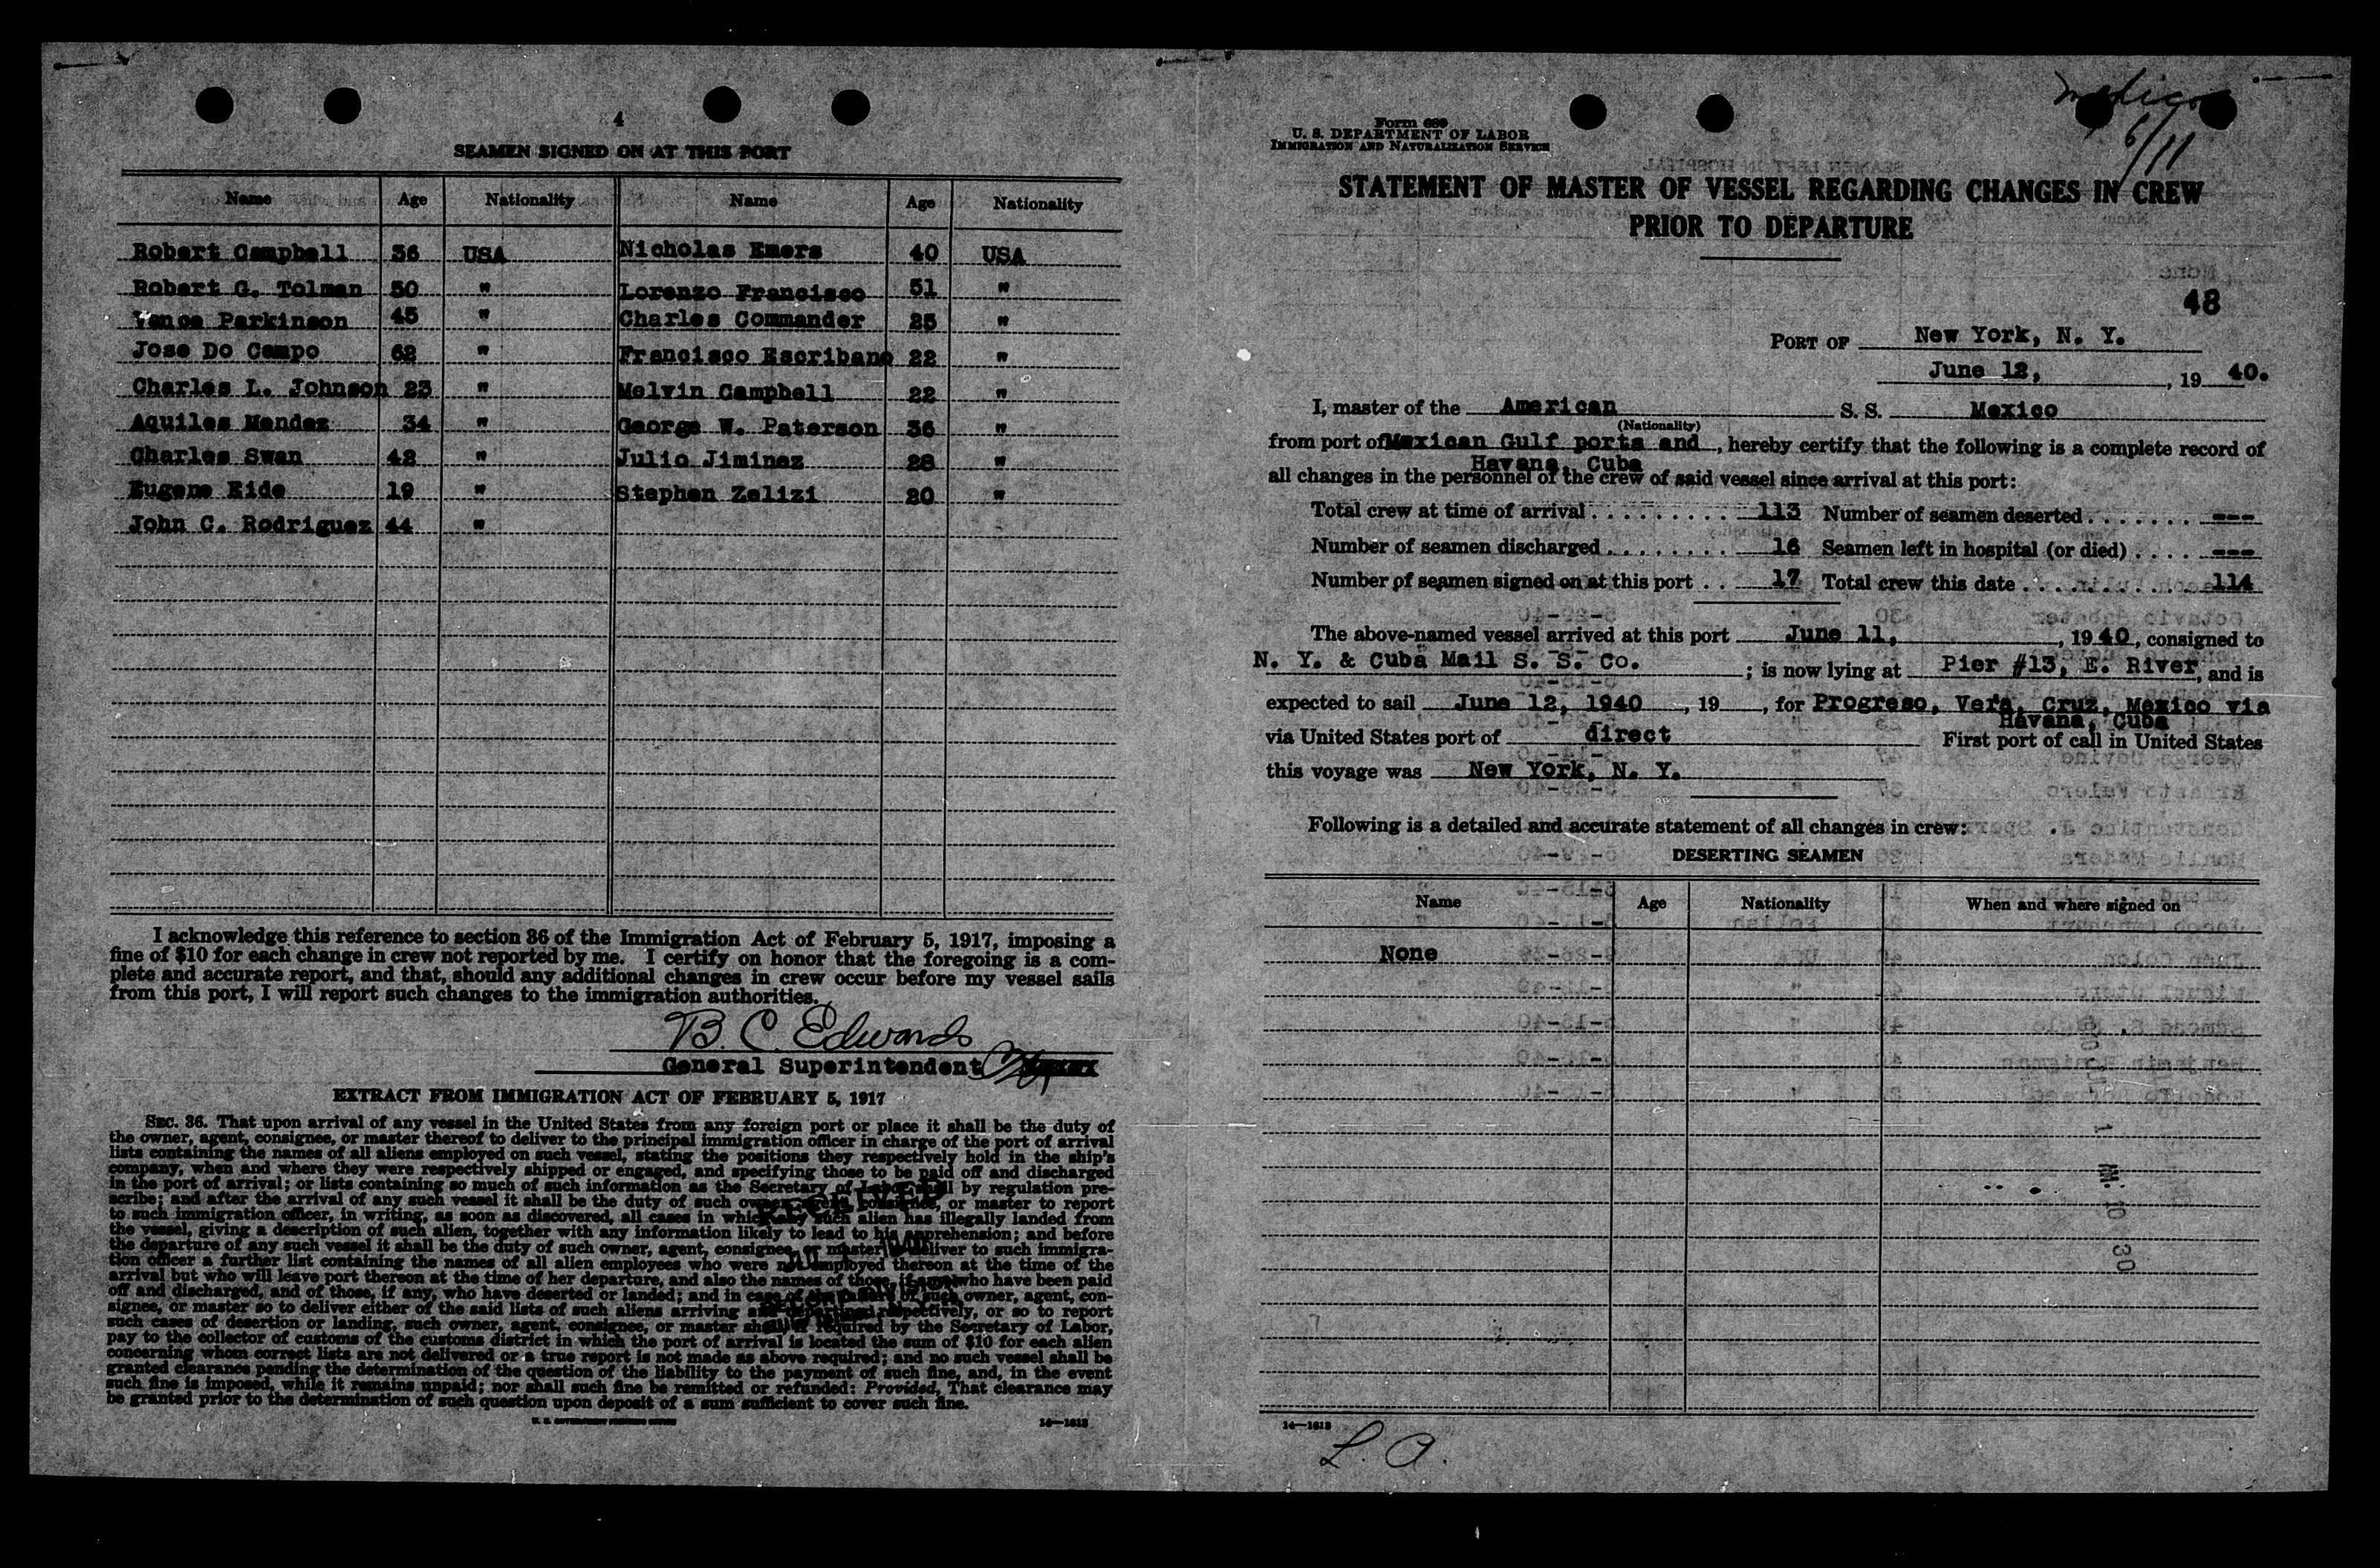 4
SEAMEN SIGNED ON AT THIS PORT
Name Age Nationality Name Age Nationality
Robert Campbell 36 USA Nicholas Emers 40 USA
Robert G. Tolman 50 " Lorenzo Francisco 51 "
Vance Parkinson 45 " Charles Commander 25 "
Jose Do Campo 62 " Francisco Escribano 22 "
Charles L. Johnson 23 " Melvin Campbell 22 "
Aquiles Mendez 34 " George W. Paterson 36 "
Charles Swan 42 " Julio Jiminez 28 "
Eugene Eide 19 " Stephen Zelizi 20 "
John C. Rodriguez 44 "
I acknowledge this reference to section 36 of the Immigration Act of February 5, 1917, imposing a
fine of $10 for each change in crew not reported by me. I certify on honor that the foregoing is a com-
plete and accurate report, and that, should any additional changes in crew occur before my vessel sails
from this port, I will report such changes to the immigration authorities.
B. C. Edwards
General Superintendent
EXTRACT FROM IMMIGRATION ACT OF FEBRUARY 5, 1917
SEC. 36. That upon arrival of any vessel in the United States from any foreign port or place it shall be the duty of
the owner, agent, consignee, or master thereof to deliver to the principal immigration officer in charge of the port of arrival
lists containing the names of all aliens employed on such vessel, stating the positions they respectively hold in the ship's
company, when and where they were respectively shipped or engaged, and specifying those to be paid off and discharged
in the port of arrival; or lists containing so much of such information as the Secretary of Labor shall by regulation pre-
scribe; and after the arrival of any such vessel it shall be the duty of such owner, agent, consignee, or master to report
to such immigration officer, in writing, as soon as discovered, all cases in which any such alien has illegally landed from
the vessel, giving a description of such alien, together with any information likely to lead to his apprehension; and before
the departure of any such vessel it shall be the duty of such owner, agent, consignee, or master to deliver to such immigra-
tion officer a further list containing the names of all alien employees who were not employed thereon at the time of the
arrival but who will leave port thereon at the time of her departure, and also the names of those, if any, who have been paid
off and discharged, and of those, if any, who have deserted or landed; and in case of the failure of such owner, agent, con-
signee, or master so to deliver either of the said lists of such aliens arriving and departing, respectively, or so to report
such cases of desertion or landing, such owner, agent, consignee, or master shall if required by the Secretary of Labor,
pay to the collector of customs of the customs district in which the port of arrival is located the sum of $10 for each alien
concerning whom correct lists are not delivered or a true report is not made as above required; and no such vessel shall be
granted clearance pending the determination of the question of the liability to the payment of such fine, and, in the event
such fine is imposed, while it remains unpaid; nor shall such fine be remitted or refunded: Provided, That clearance may
be granted prior to the determination of such question upon deposit of a sum sufficient to cover such fine.
U. S. GOVERNMENT PRINTING OFFICE 14—1613
Mexico
6/11
Form 689
U. S. DEPARTMENT OF LABOR
IMMIGRATION AND NATURALIZATION SERVICE
STATEMENT OF MASTER OF VESSEL REGARDING CHANGES IN CREW
PRIOR TO DEPARTURE
48
PORT OF New York, N. Y.
June 12, , 19 40.
I, master of the American S. S. Mexico
(Nationality)
from port of Mexican Gulf ports and , hereby certify that the following is a complete record of
Havana, Cuba
all changes in the personnel of the crew of said vessel since arrival at this port:
Total crew at time of arrival 113 Number of seamen deserted ---
Number of seamen discharged 16 Seamen left in hospital (or died) ---
Number of seamen signed on at this port 17 Total crew this date 114
The above-named vessel arrived at this port June 11, , 19 40, consigned to
N. Y. & Cuba Mail S. S. Co. ; is now lying at Pier #13, E. River, and is
expected to sail June 12, 1940 , 19 , for Progreso, Vera Cruz, Mexico via
Havana, Cuba
via United States port of direct First port of call in United States
this voyage was New York, N. Y.
Following is a detailed and accurate statement of all changes in crew:
DESERTING SEAMEN
Name Age Nationality When and where signed on
None
1 AM. 10 30
14—1613
L. A.